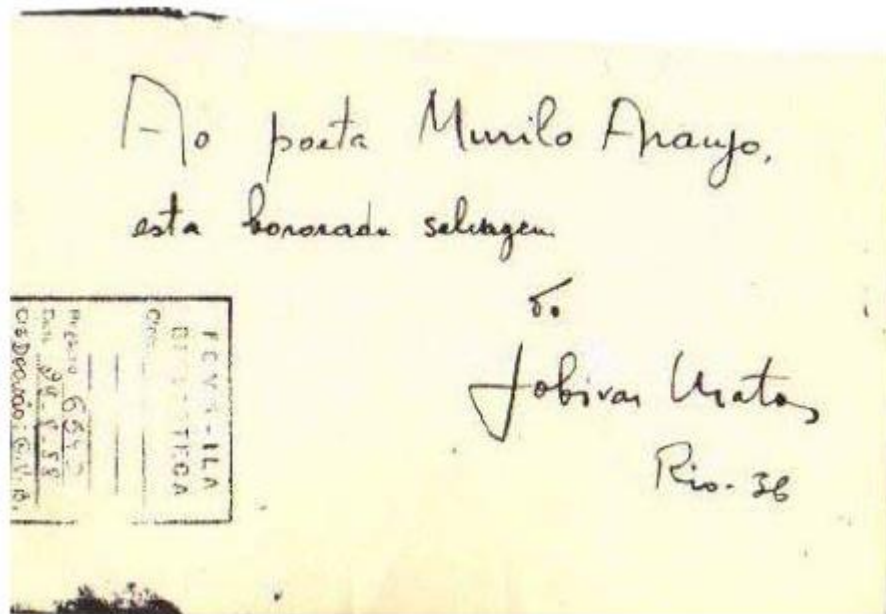 Ao poeta Murilo Araujo,
esta bororada selvagem
do
Lobivar Matos
Rio-36
BIBLIOTECA
Registro 6642
Data